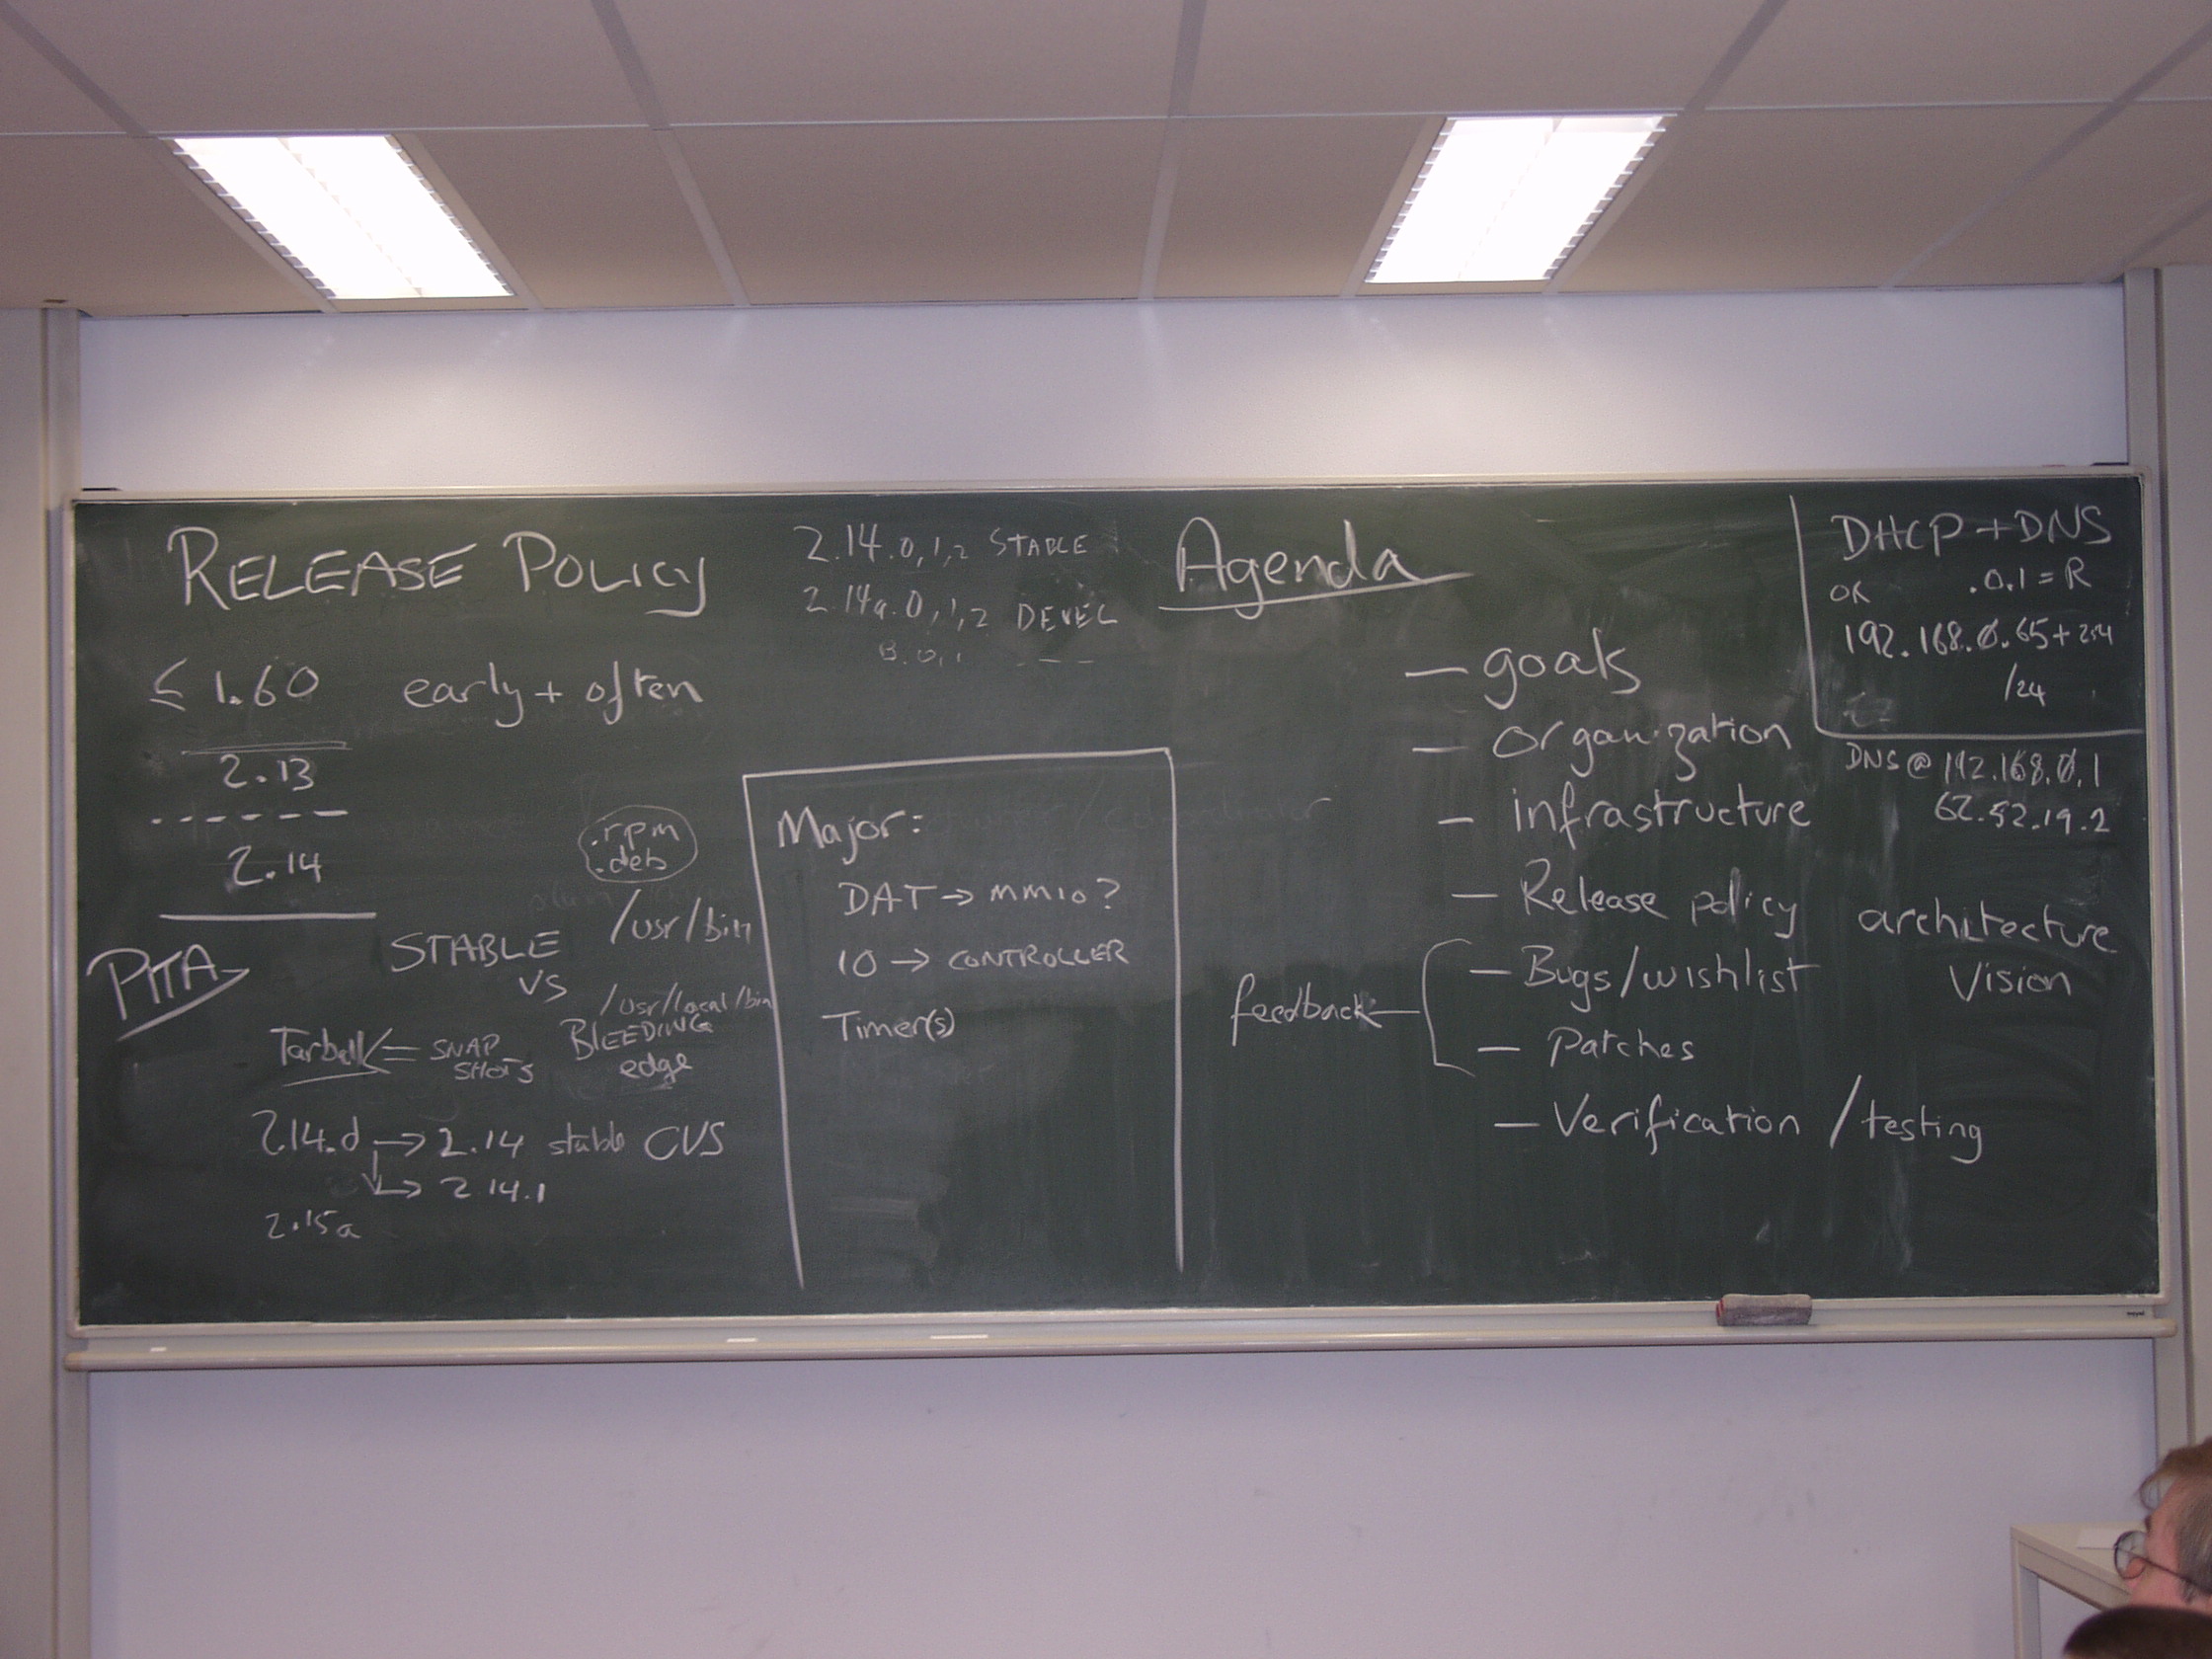 RELEASE POLICY
≤ 1.60 early + often
2.13
2.14
PITA
STABLE
vs
BLEEDING
edge
.rpm
.deb
/usr/bin
/usr/local/bin
Tarball <= SNAP
SHOTS
2.14.d → 2.14 stable CVS
→ 2.14.1
2.15a
2.14.0,1,2 STABLE
2.14a.0,1,2 DEVEL
B.0,1 - - -
Major:
DAT → MMIO?
IO → CONTROLLER
Timer(s)
Agenda
- goals
- organization
- infrastructure
- Release policy
- Bugs/wishlist
- Patches
- Verification / testing
feedback
architecture
Vision
DHCP + DNS
OR .0.1 = R
192.168.0.65+
/24
DNS @ 192.168.0.1
62.52.19.2